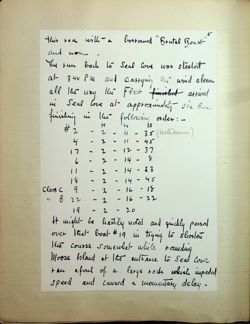 5
this race with a borrowed "Brutal Beast"
and won.
The run back to Seal Cove was started
at 3:44 P.M and carrying the wind abeam
all the way the Fleet finished arrived
in Seal Cove at approximately six P.M.
finishing in the following order:-
H M S
# 2 - 2 - 11 - 35
4 - 2 - 11 - 45
17 - 2 - 12 - 37
6 - 2 - 14 - 8
11 - 2 - 14 - 23
18 - 2 - 14 - 45
Class C 9 - 2 - 16 - 18
" B 22 - 2 - 16 - 22
19 - 2 - 20
It might be hastily noted and quickly passed
over that boat #19 in trying to shorten
the course somewhat while rounding
Moose Island at the entrance to Seal Cove
ran afoul of a large rock which impeded
speed and caused a momentary delay.